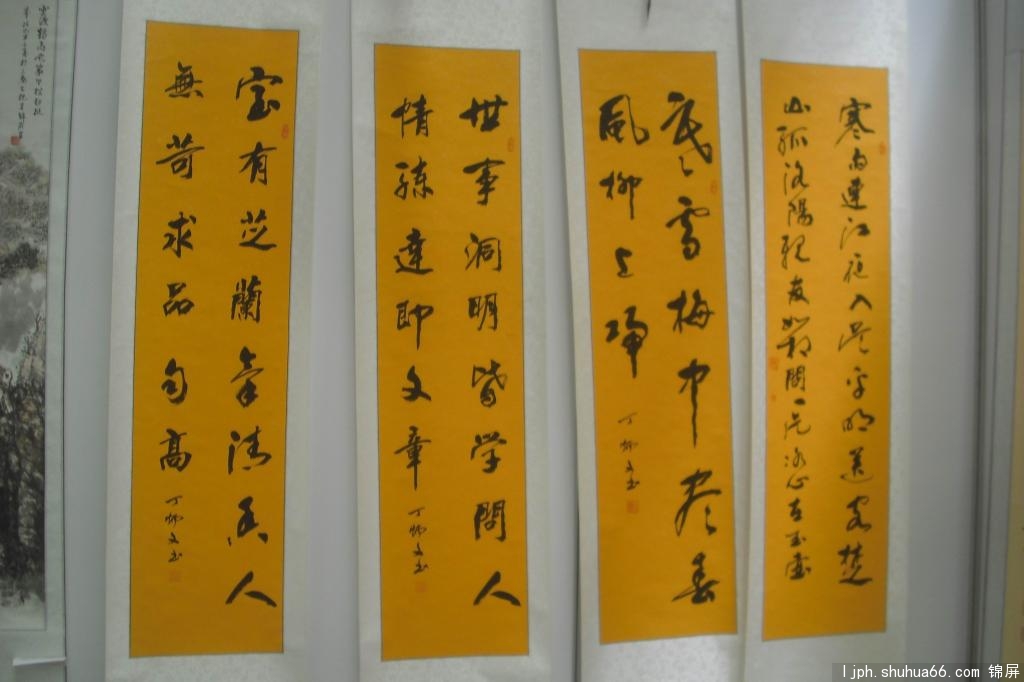 寒雨連江夜入吴平明送客楚
山孤洛陽親友如相問一片冰心在玉壺
寒雪梅中盡春
風柳上歸
丁炳文书
世事洞明皆学問人
情練達即文章
丁炳文书
室有芝蘭氣清香人
無苛求品自高
丁炳文书
ljph.shuhua66.com 锦屏